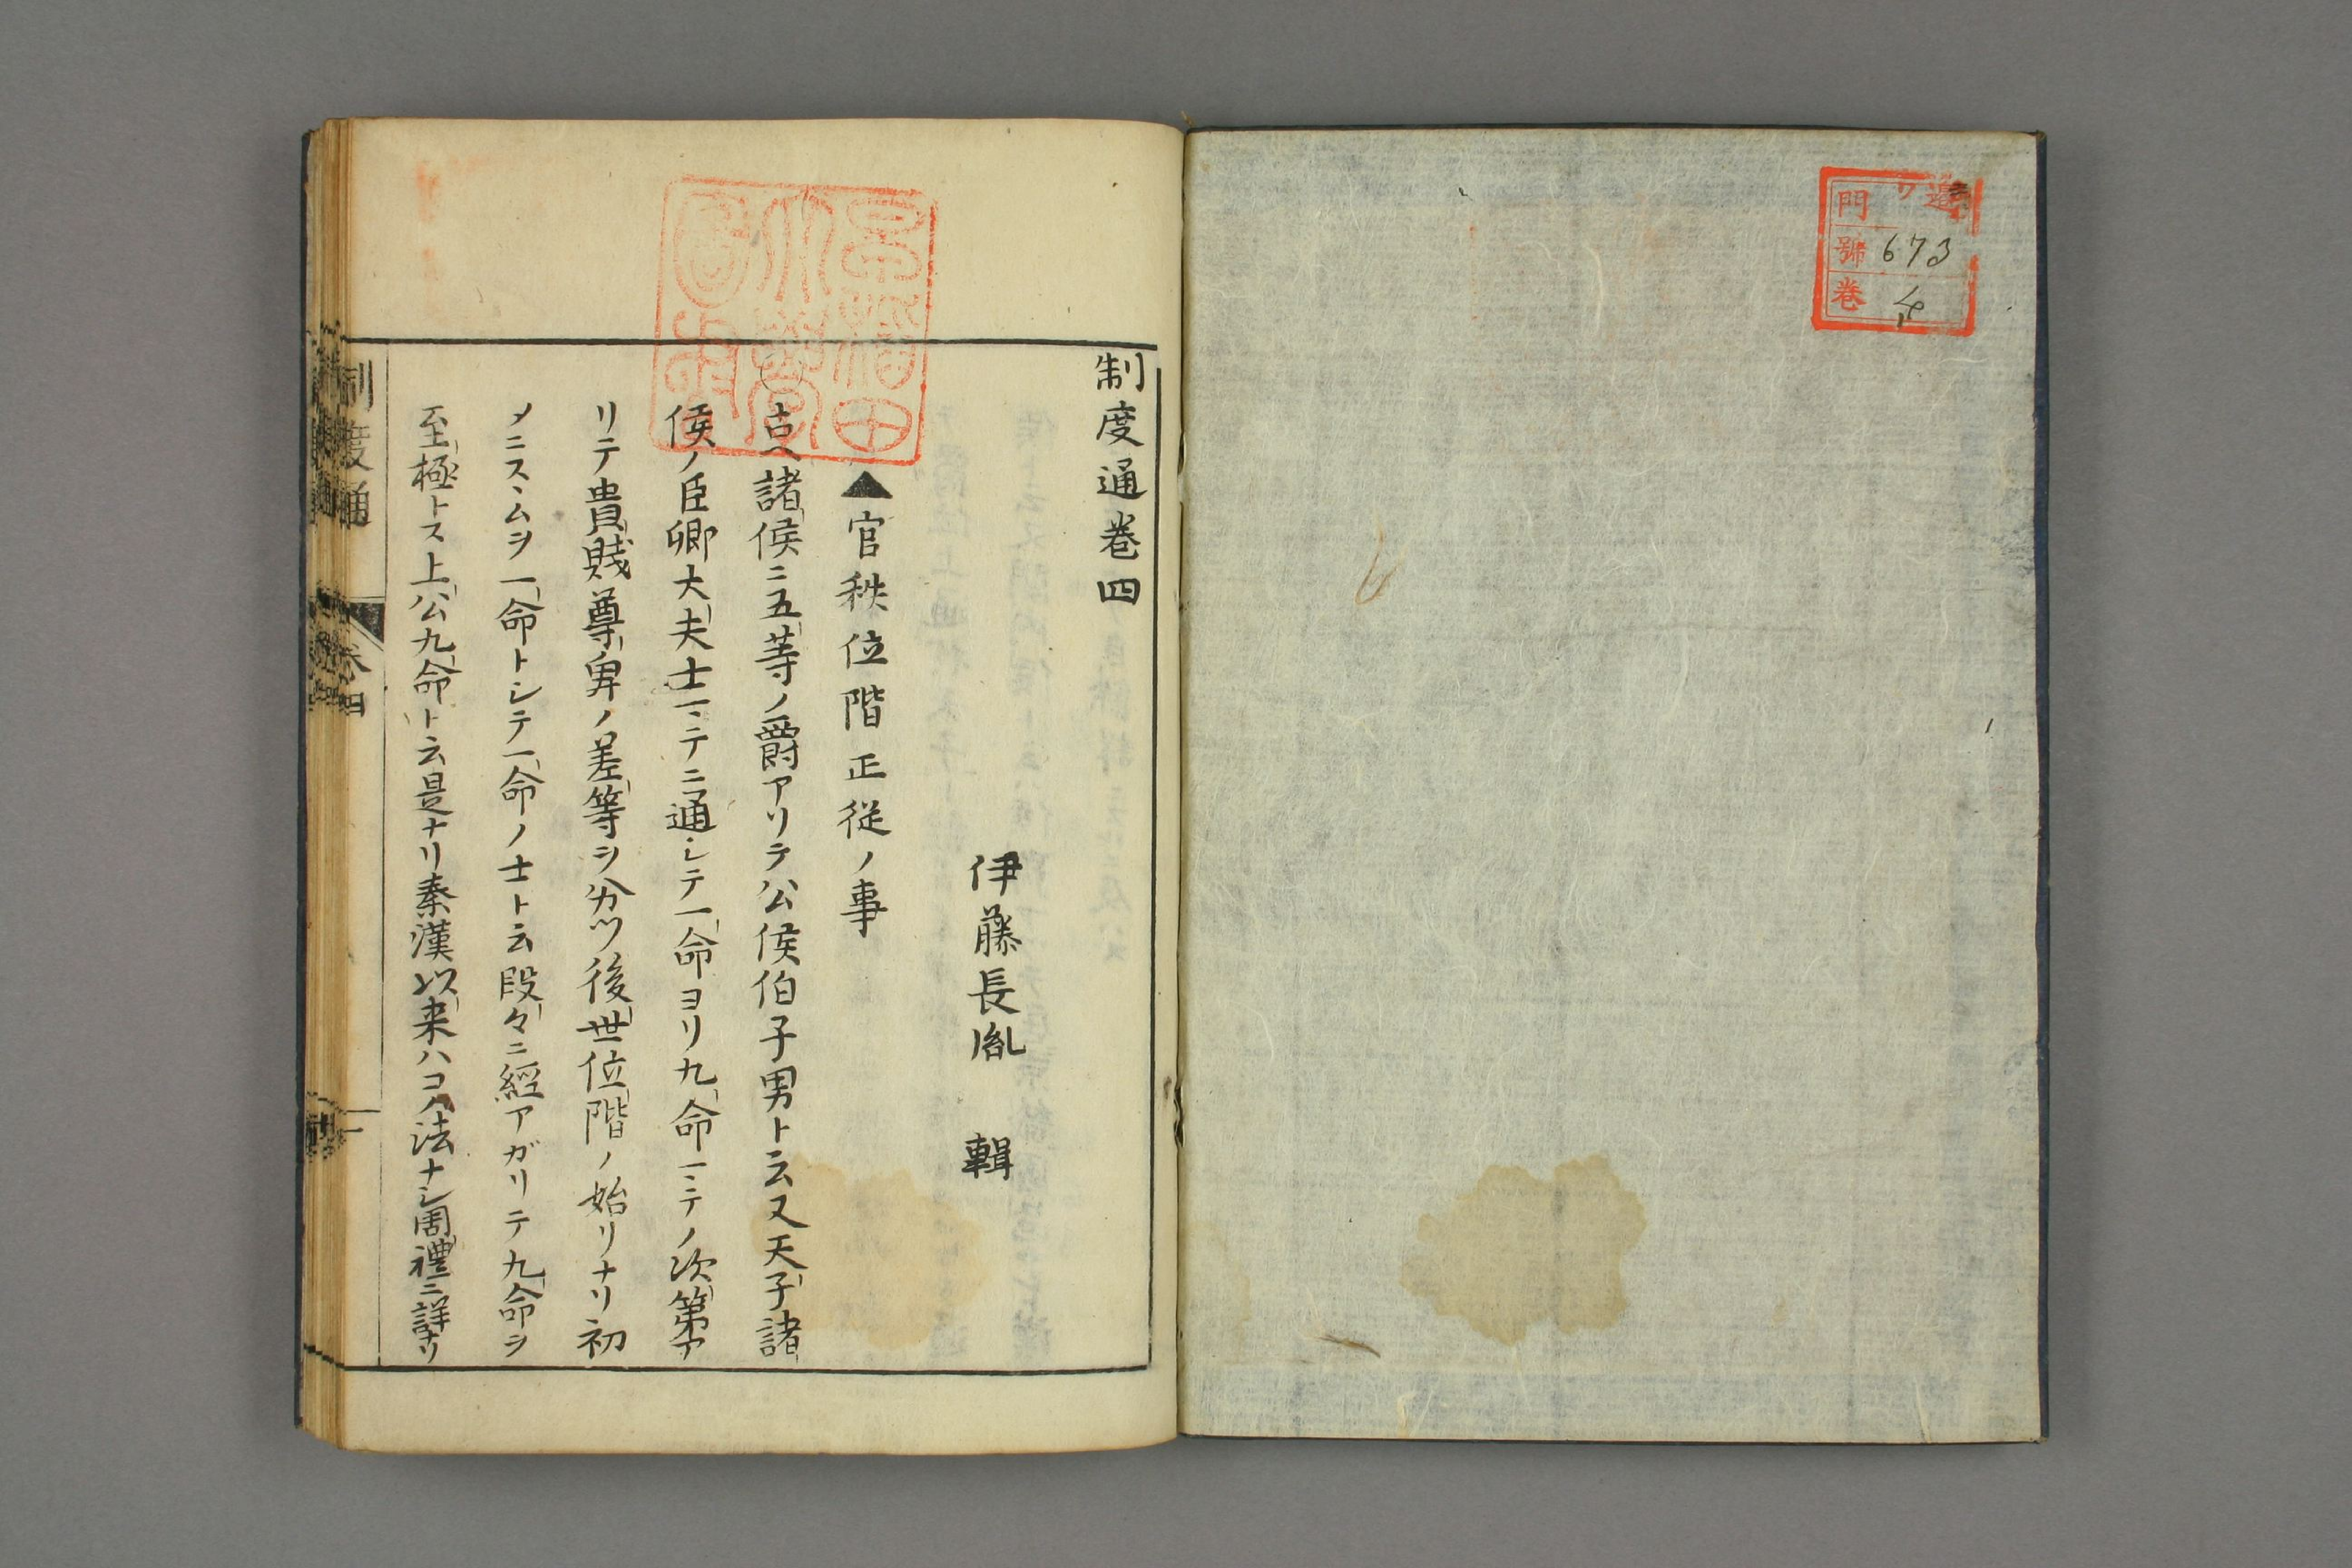 門
號 673
卷 4
早稲田大學圖書
制度通巻四
伊藤長胤 輯
▲官秩位階正從ノ事
〇古ヘ諸侯ニ五等ノ爵アリテ公侯伯子男ト云又天子諸
侯ノ臣卿大夫士マテニ通シテ一命ヨリ九命マテノ次第ア
リテ貴賤尊卑ノ差等ヲ分ツ後世位階ノ始リナリ初
メニスヽムヲ一命トシテ一命ノ士ト云段々ニ經アガリテ九命ヲ
至極トス上公九命ト云是ナリ秦漢以来ハコノ法ナシ周禮ニ詳ナリ
制度通
卷四
一